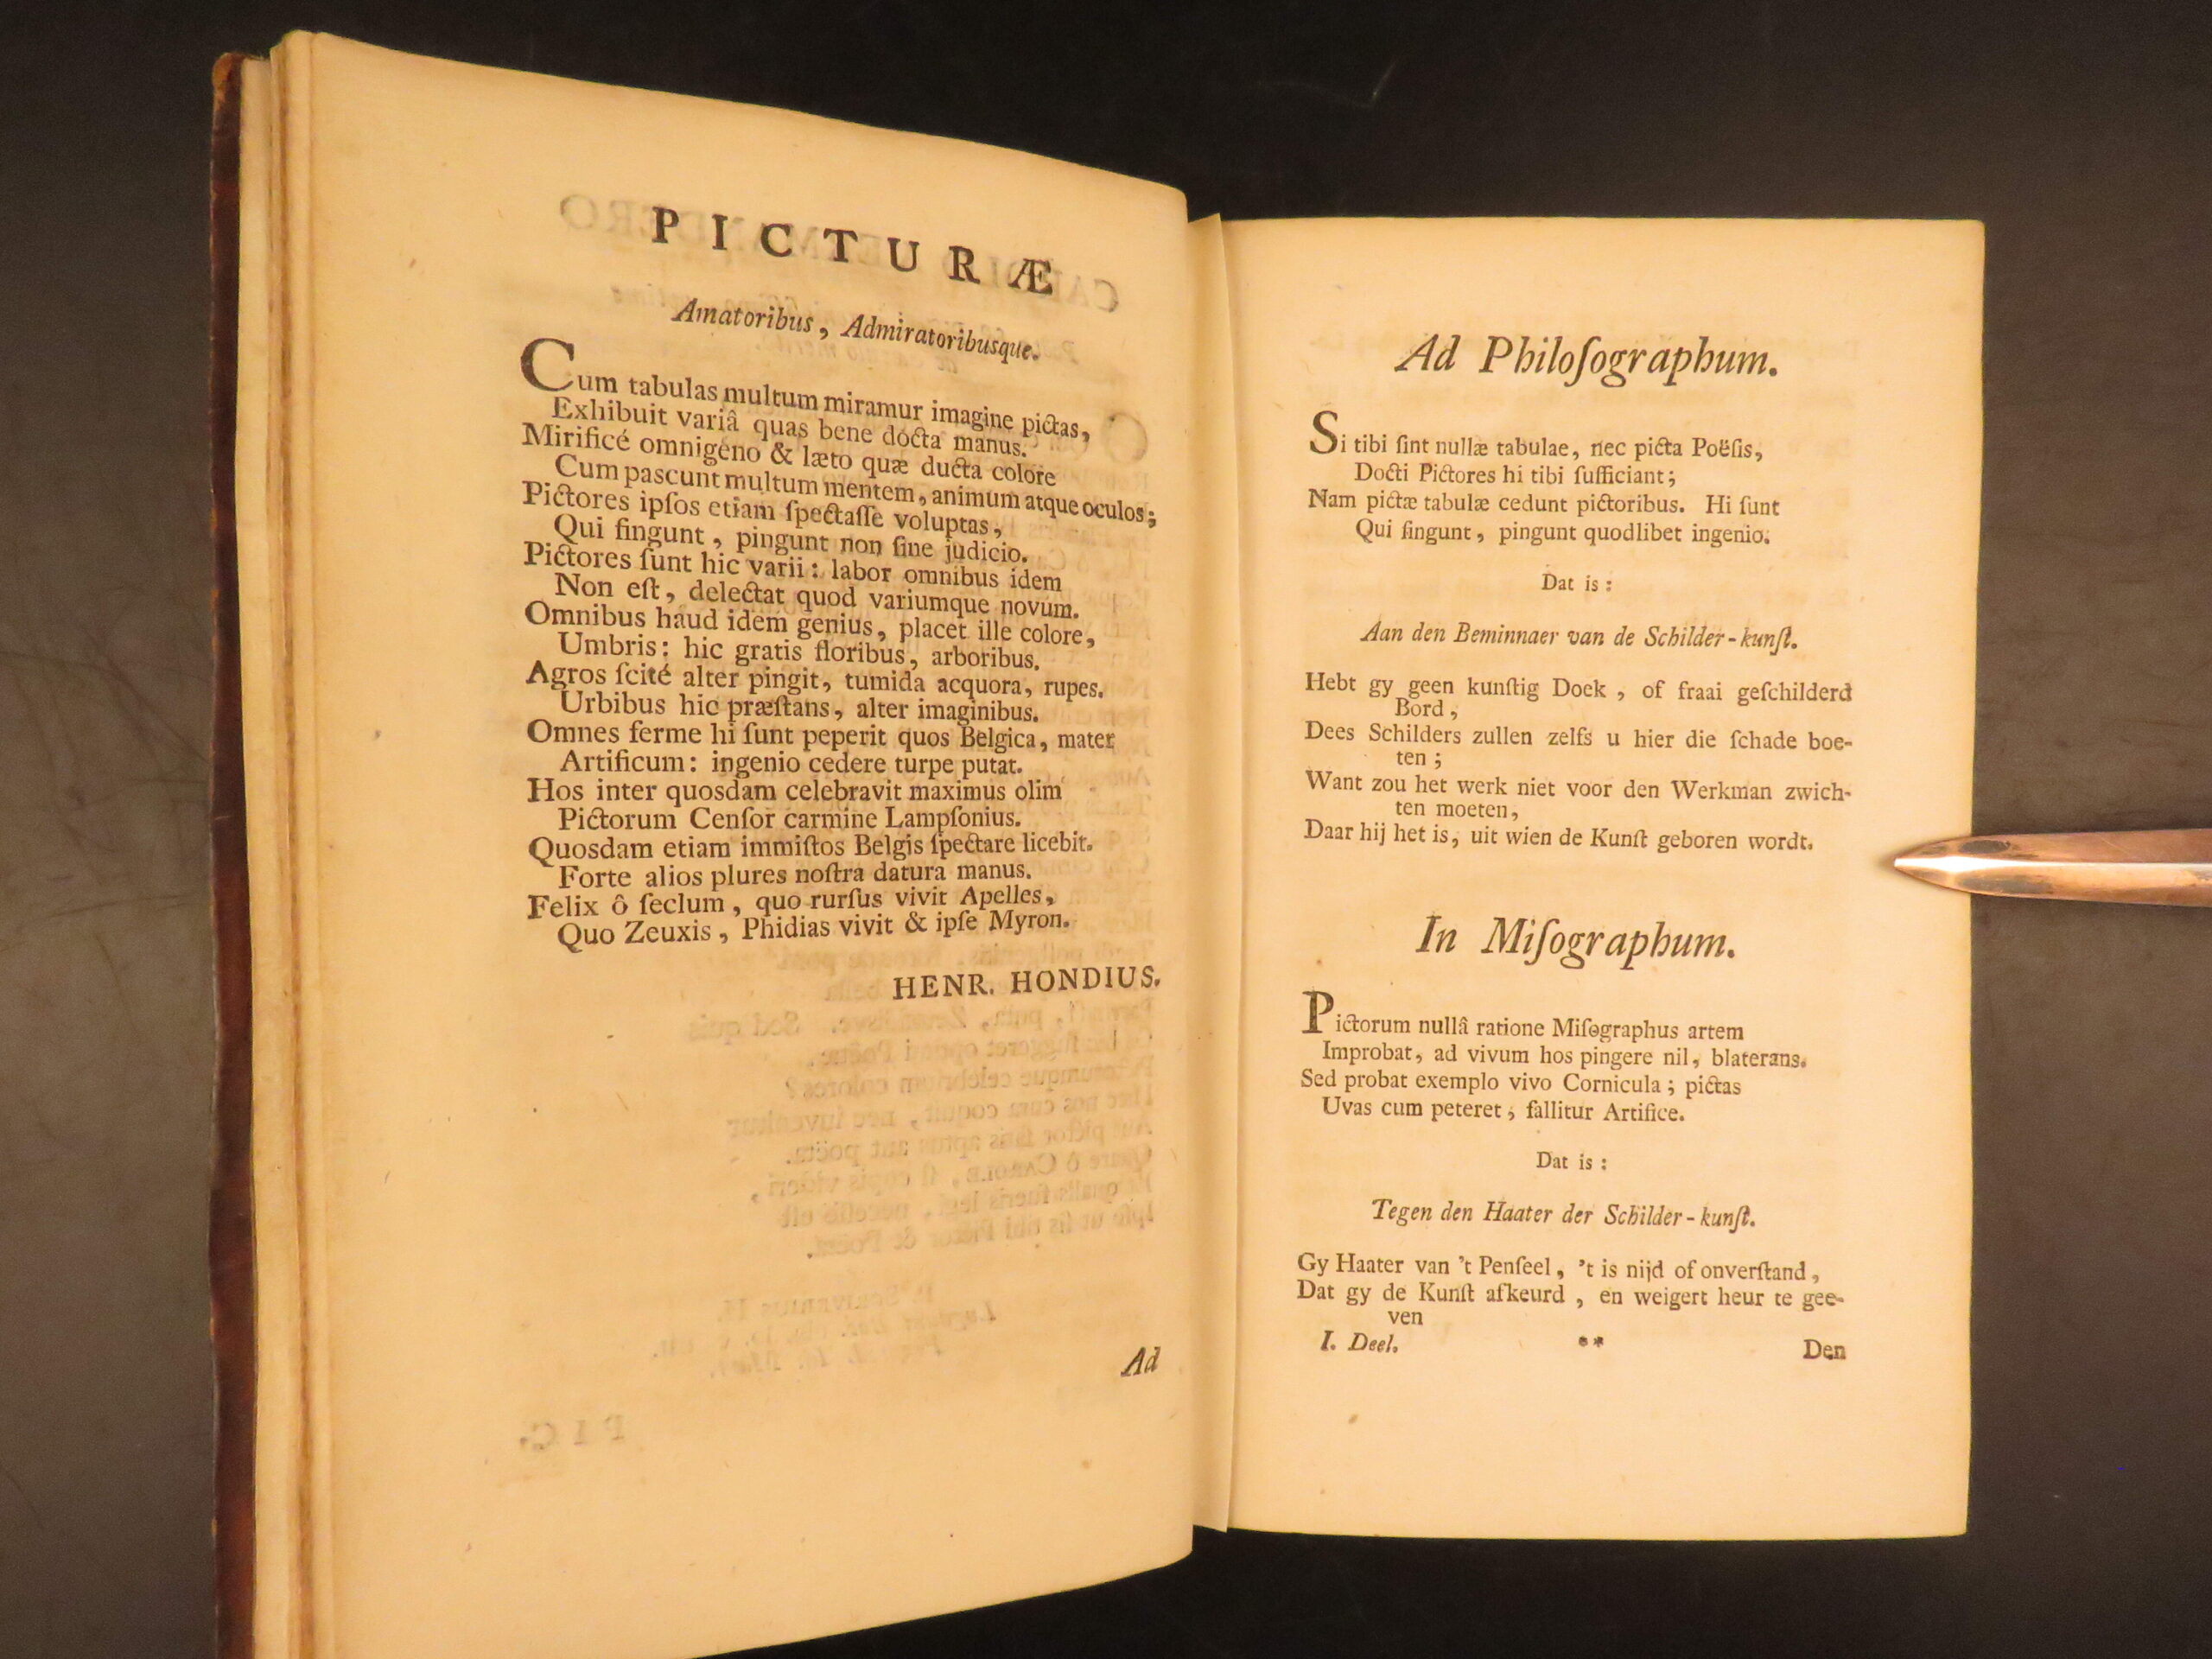 PICTURÆ
Amatoribus, Admiratoribusque.
Cum tabulas multum miramur imagine pictas,
Exhibuit variâ quas bene docta manus.
Mirificé omnigeno & læto quæ ducta colore
Cum pascunt multum mentem, animum atque oculos;
Pictores ipſos etiam ſpectaſſe voluptas,
Qui fingunt, pingunt non ſine judicio.
Pictores ſunt hic varii: labor omnibus idem
Non eſt, delectat quod variumque novum.
Omnibus haud idem genius, placet ille colore,
Umbris: hic gratis floribus, arboribus.
Agros ſcité alter pingit, tumida acquora, rupes.
Urbibus hic præſtans, alter imaginibus.
Omnes ferme hi ſunt peperit quos Belgica, mater
Artificum: ingenio cedere turpe putat.
Hos inter quosdam celebravit maximus olim
Pictorum Cenſor carmine Lampſonius.
Quosdam etiam immiſtos Belgis ſpectare licebit.
Forte alios plures noſtra datura manus.
Felix ô ſeclum, quo rurſus vivit Apelles,
Quo Zeuxis, Phidias vivit & ipſe Myron.
HENR. HONDIUS.
Ad
Ad Philoſographum.
Si tibi ſint nullæ tabulae, nec picta Poëſis,
Docti Pictores hi tibi ſufficiant;
Nam pictæ tabulæ cedunt pictoribus. Hi ſunt
Qui fingunt, pingunt quodlibet ingenio.
Dat is:
Aan den Beminnaer van de Schilder-kunſt.
Hebt gy geen kunſtig Doek, of fraai geſchilderd
Bord,
Dees Schilders zullen zelfs u hier die ſchade boe-
ten;
Want zou het werk niet voor den Werkman zwich-
ten moeten,
Daar hij het is, uit wien de Kunſt geboren wordt.
In Miſographum.
Pictorum nullâ ratione Miſographus artem
Improbat, ad vivum hos pingere nil, blaterans.
Sed probat exemplo vivo Cornicula; pictas
Uvas cum peteret, fallitur Artifice.
Dat is:
Tegen den Haater der Schilder-kunſt.
Gy Haater van 't Penſeel, 't is nijd of onverſtand,
Dat gy de Kunſt afkeurd, en weigert heur te gee-
ven
I. Deel. ** Den